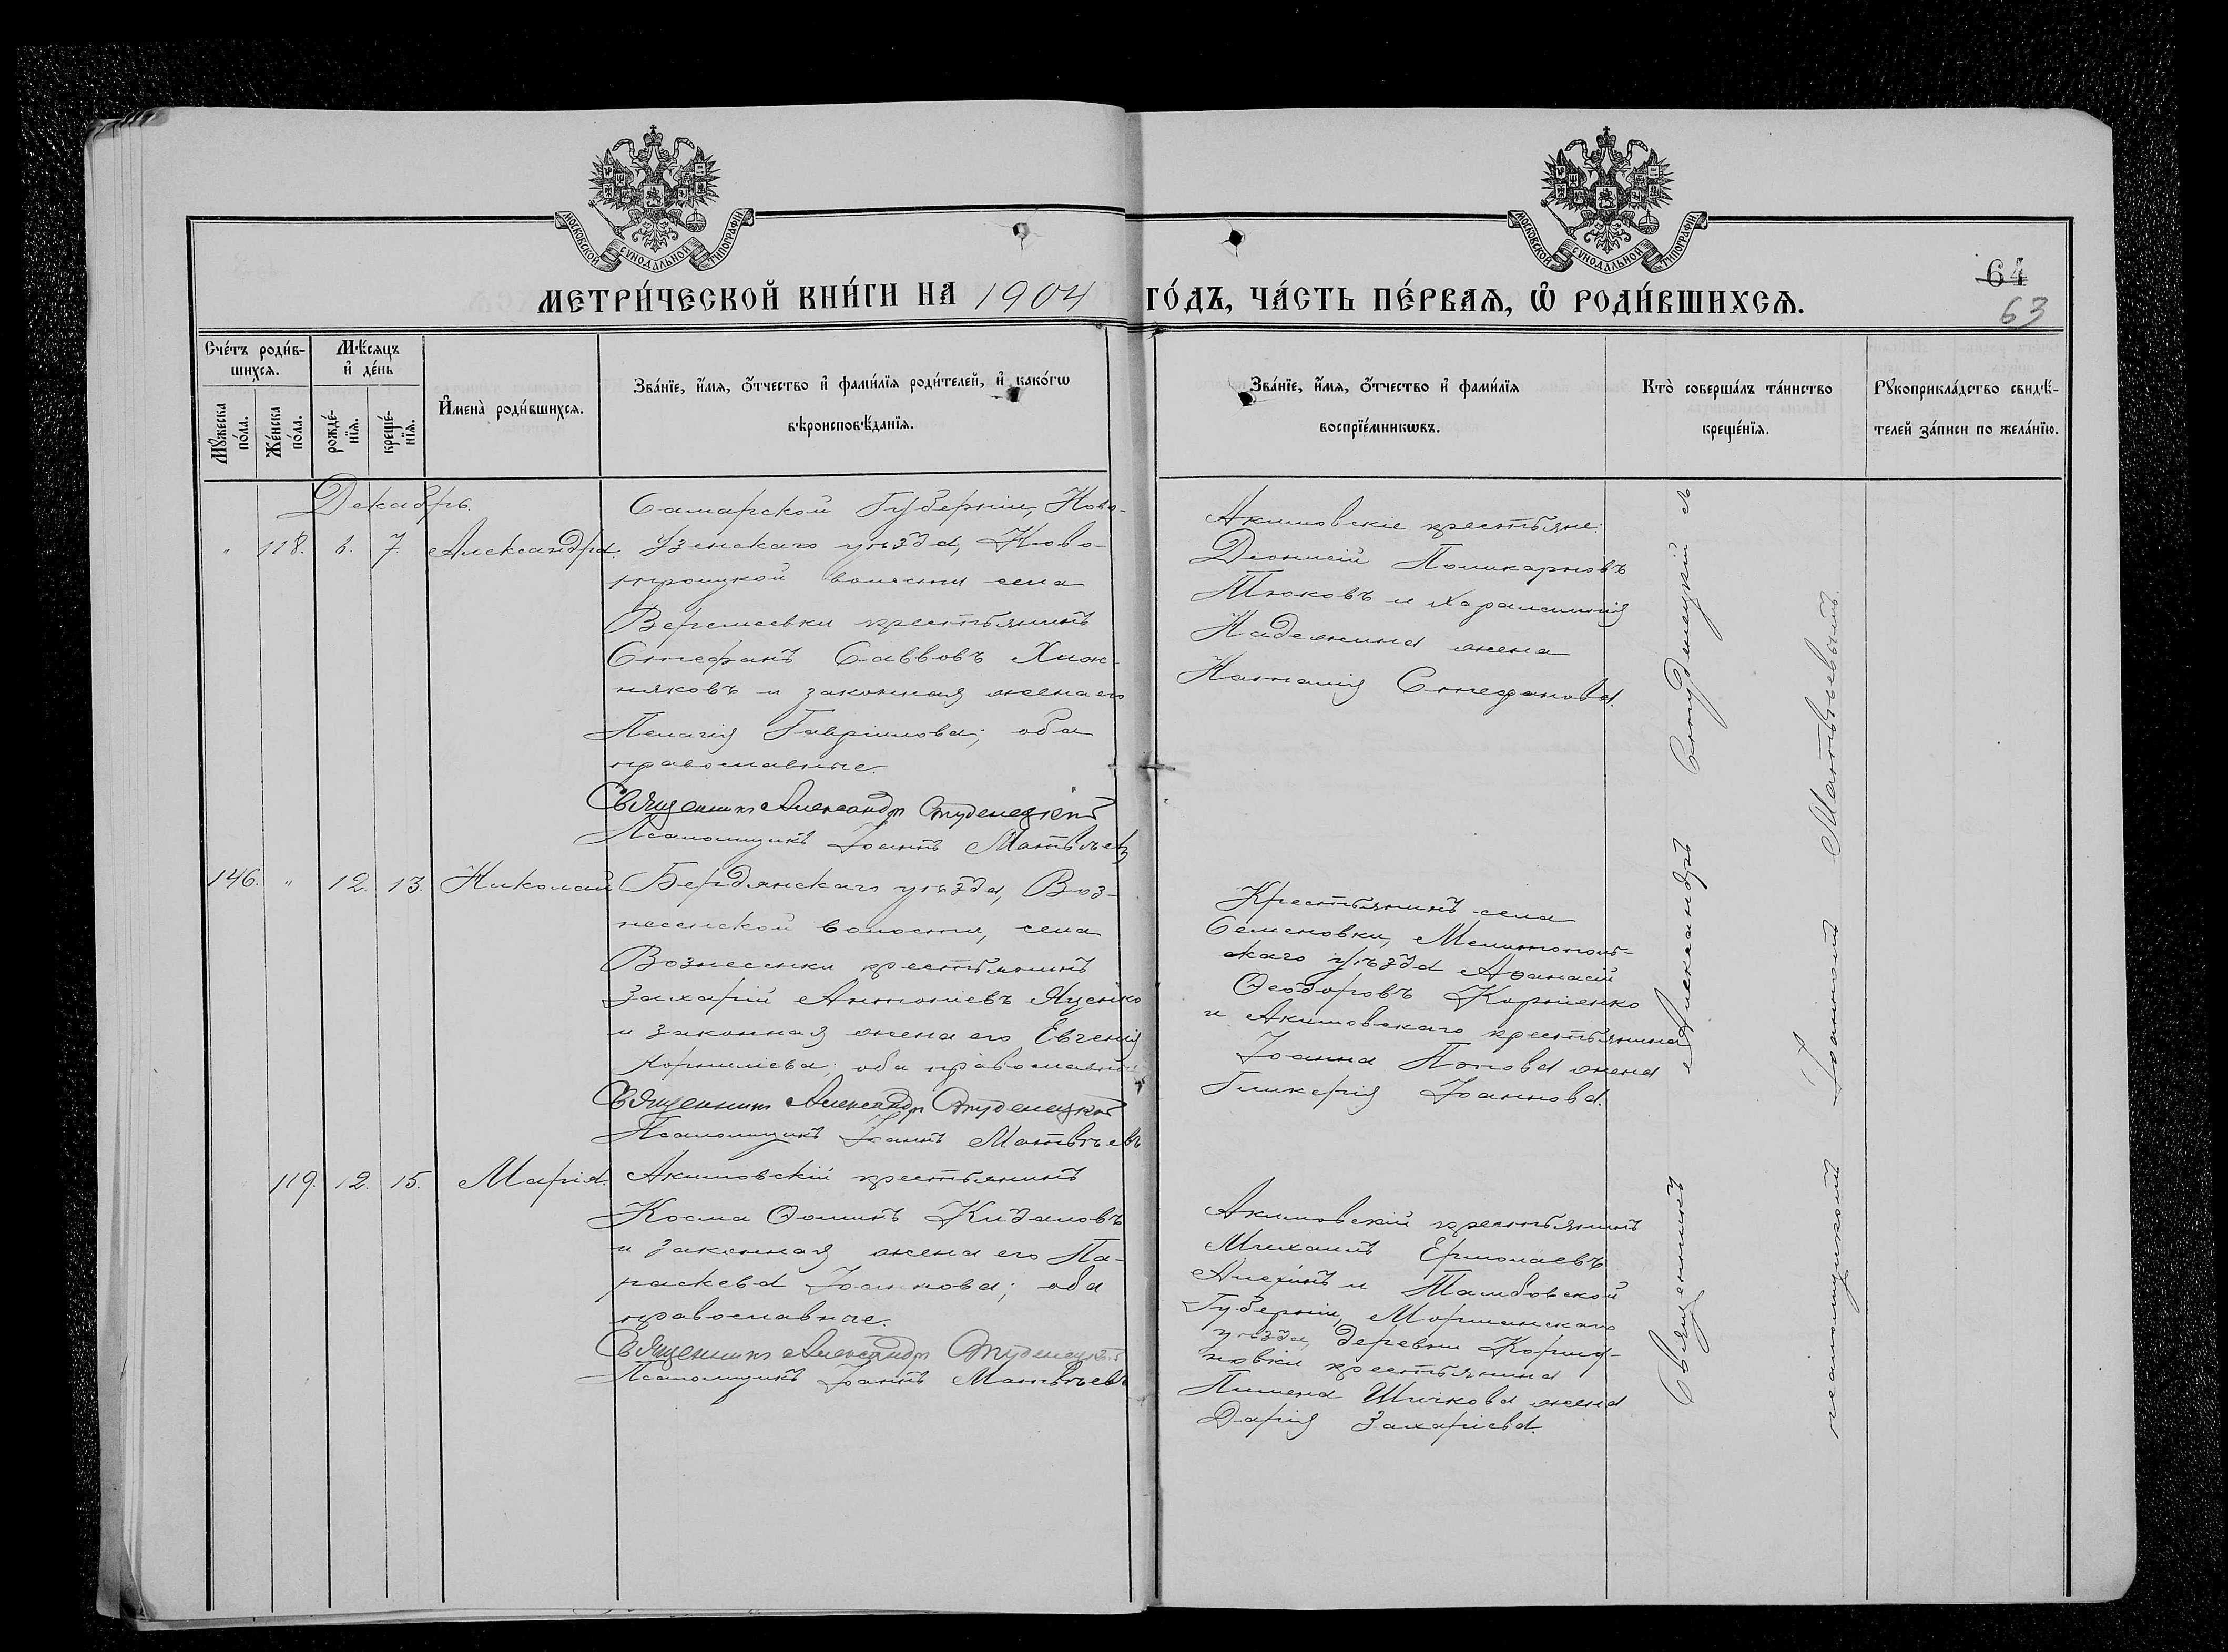 МОСКОВСКОЙ СѴНОДАЛЬНОЙ ТИПОГРАФІИ
МОСКОВСКОЙ СѴНОДАЛЬНОЙ ТИПОГРАФІИ
64
63
МЕТРИ́ЧЕСКОЙ КНИ́ГИ НА 1904 ГО́ДЪ, ЧА́СТЬ ПЕ́РВАѦ, Ѡ҆ РОДИ́ВШИХСѦ.
Сче́тъ роди́в-
шихсѧ.
Мꙋ́жеска
по́ла.
Же́нска
по́ла.
Мѣ́сѧцъ
и҆ де́нь
рожде́-
нїѧ.
креще́-
нїѧ.
И҆мена̀ роди́вшихсѧ.
Зва́нїе, и҆́мѧ, ѻ҆́тчество и҆ фами́лїѧ роди́телей, и҆ како́гѡ
вѣроисповѣ́данїѧ.
Зва́нїе, и҆́мѧ, ѻ҆́тчество и҆ фами́лїѧ
воспрїе́мникѡвъ.
Кто̀ соверша́лъ та́инство
креще́нїѧ.
Рꙋкоприкла́дство свидѣ́-
телей за́писи по жела́нїю.
Декабрь.
" 118. 6. 7. Александра.
Самарской Губерніи, Ново-
узенскаго уѣзда, Ново-
троицкой волости села
Веремеевки крестьянинъ
Стефанъ Саввовъ Хиж-
няковъ и законная жена его
Пелагія Гавріилова; оба
православные.
Священникъ Александръ Студенецкій
Псаломщикъ Іоаннъ Матвѣевъ
Акимовскіе крестьяне:
Діонисій Поликарповъ
Тюковъ и Харалампія
Наделкина жена
Наталія Стефанова.
146. " 12. 13. Николай
Бердянскаго уѣзда, Воз-
несенской волости, села
Вознесенки крестьянинъ
Захарій Антоніевъ Яценко
и законная жена его Евгенія
Корниліева; оба православные
Священникъ Александръ Студенецкій
Псаломщикъ Іоаннъ Матвѣевъ
Крестьянинъ села
Семеновки, Мелитополь-
скаго уѣзда Аѳанасій
Ѳеодоровъ Корніенко
и Акимовскаго крестьянина
Іоанна Попова жена
Гликерія Іоаннова.
119. 12. 15. Марія.
Акимовскій крестьянинъ
Косма Ѳоминъ Кидаловъ
и законная жена его Па-
раскева Іоаннова; оба
православные.
Священникъ Александръ Студенецкій
Псаломщикъ Іоаннъ Матвѣевъ
Акимовскій крестьянинъ
Михаилъ Ермолаевъ
Алехинъ и Тамбовской
Губерніи, Моршанскаго
уѣзда, деревни
крестьянина
Пимена Шичкова жена
Дарія Захаріева.
Священникъ Александръ Студенецкій и
псаломщикомъ Іоанномъ Матвѣевымъ.